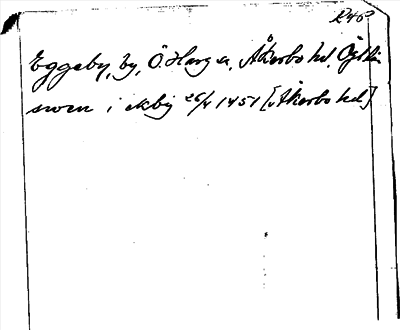 R46
Eggeby, by, Ö. Harg sn, Åkerbo hd, Ögtl.
i ekby 26/4 1451 [Åkerbo hd]